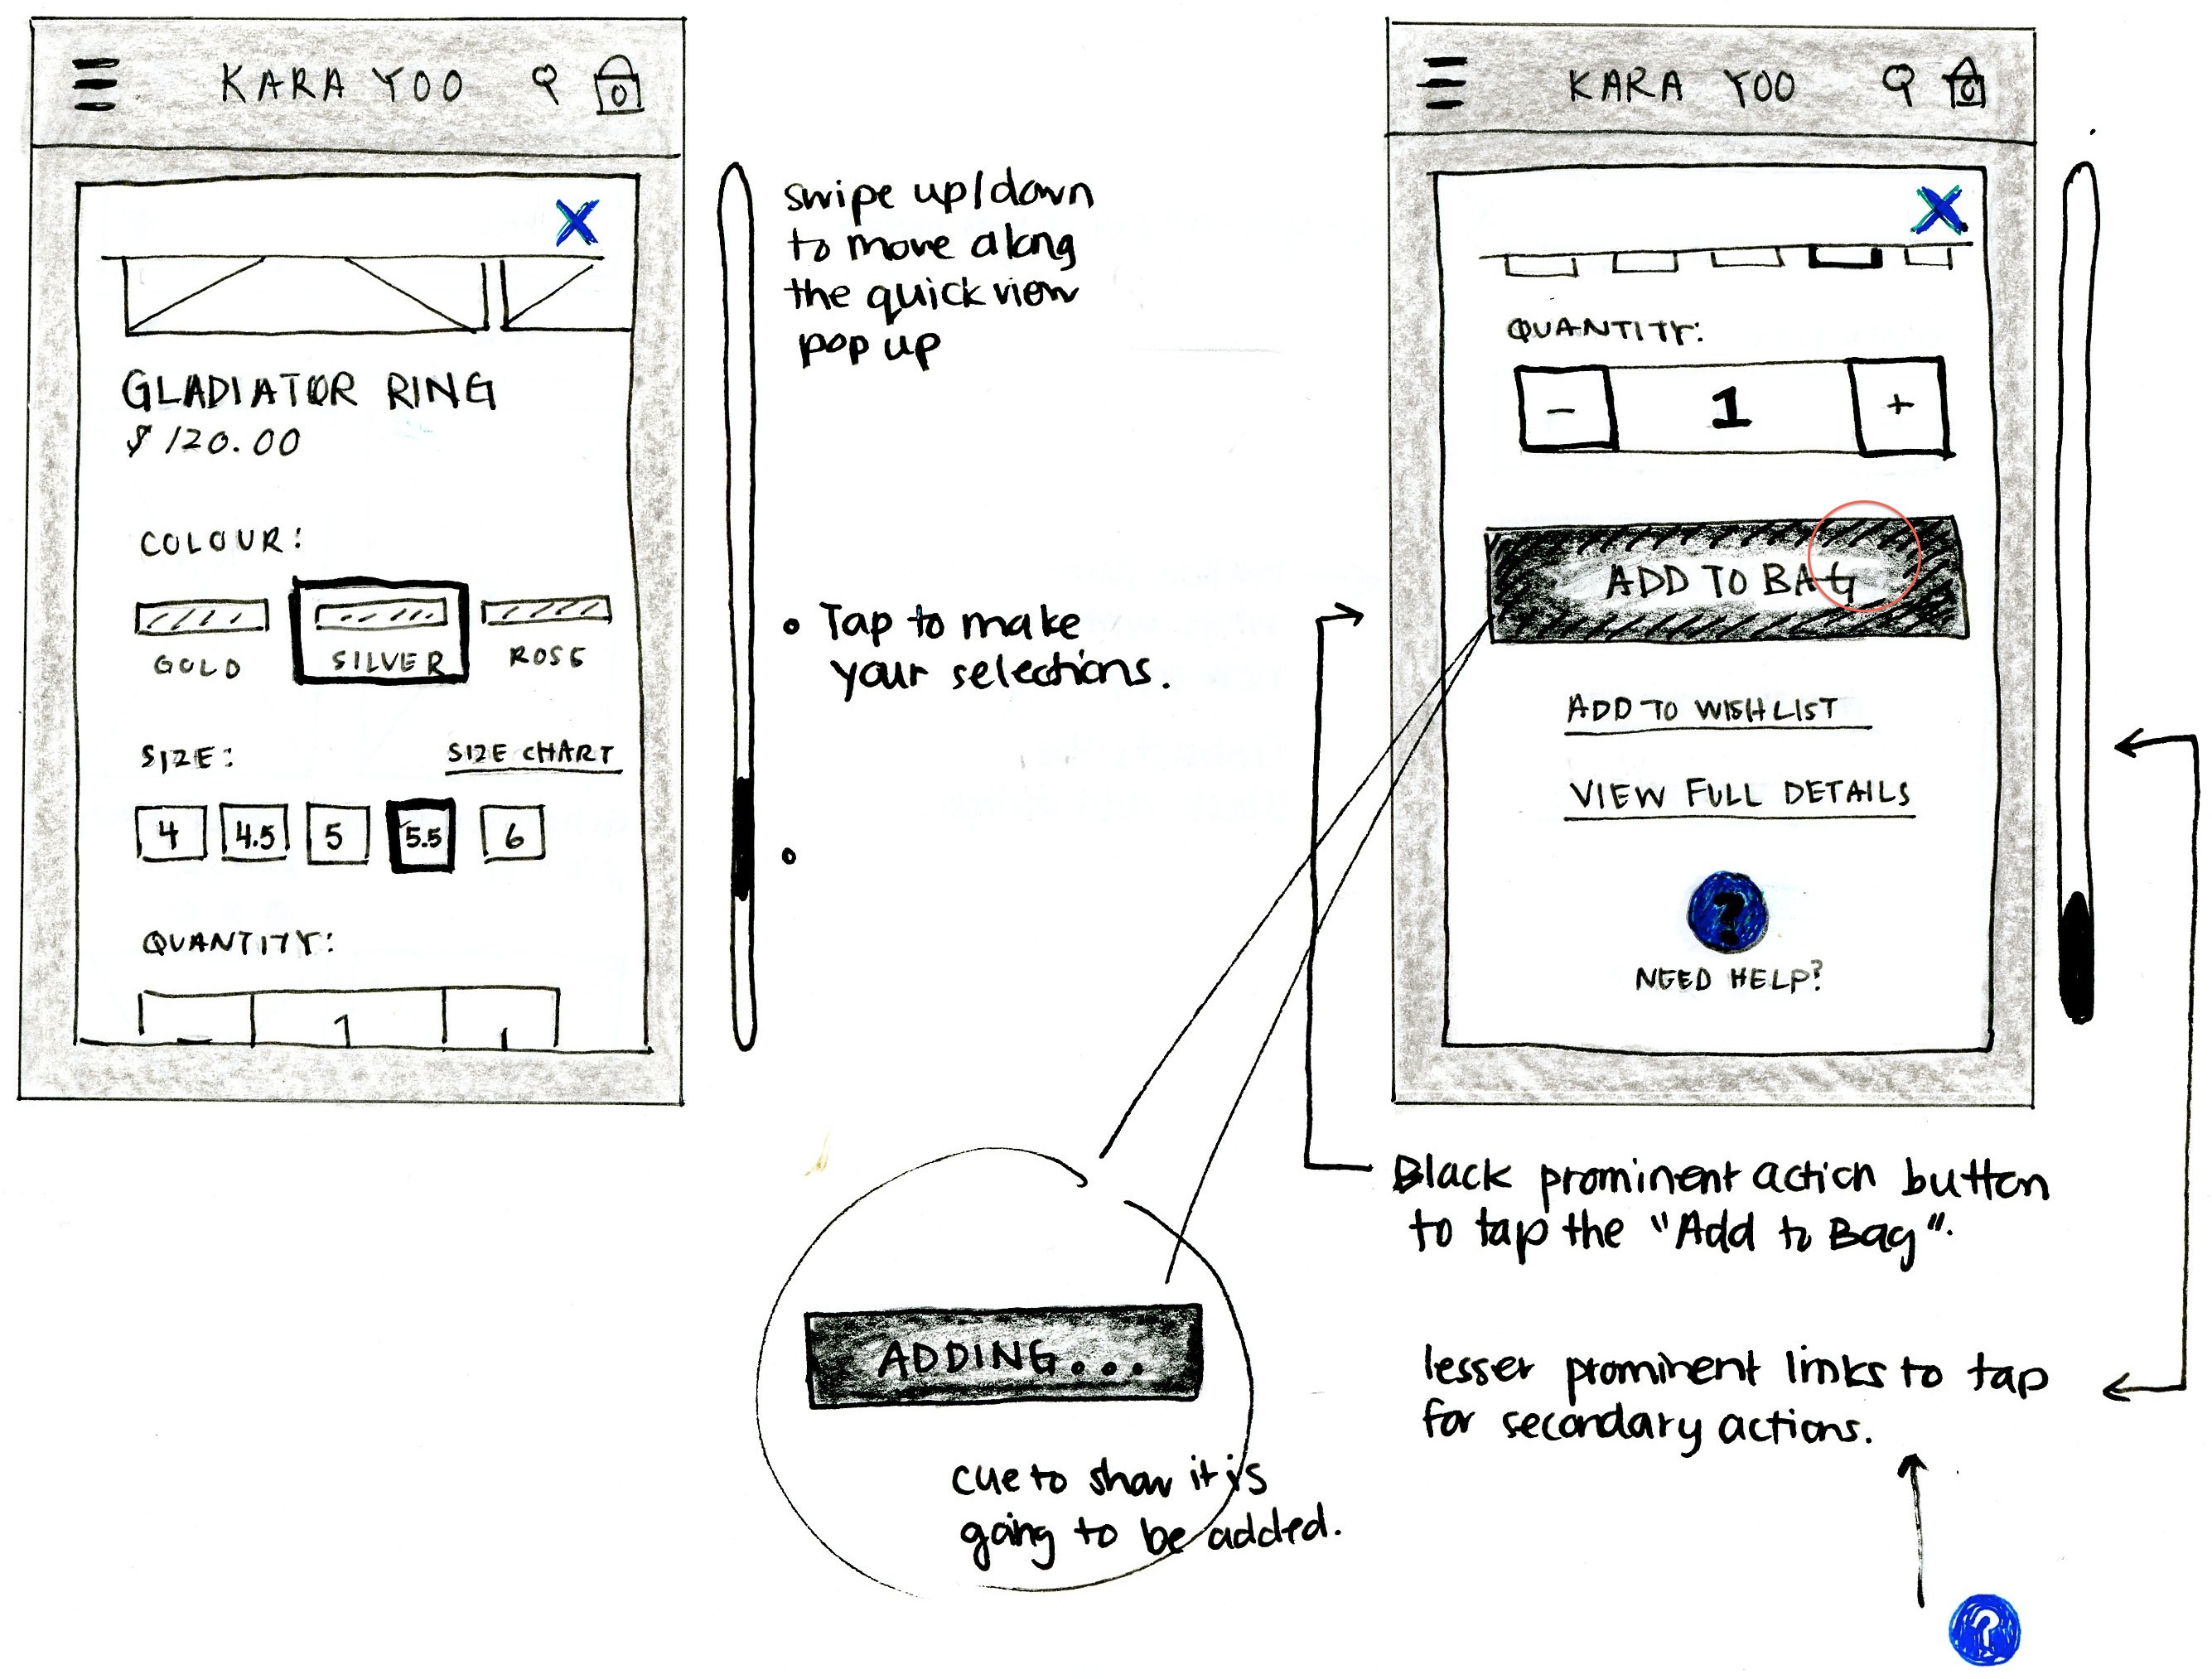 KARA YOO
0
X
GLADIATOR RING
$120.00
COLOUR:
GOLD SILVER ROSE
SIZE: SIZE CHART
4 4.5 5 5.5 6
QUANTITY:
1
swipe up/down
to move along
the quick view
pop up
Tap to make
your selections.
KARA YOO
0
X
QUANTITY:
- 1 +
ADD TO BAG
ADD TO WISHLIST
VIEW FULL DETAILS
?
NEED HELP?
ADDING...
cue to show it is
going to be added.
Black prominent action button
to tap the "Add to Bag".
lesser prominent links to tap
for secondary actions.
?